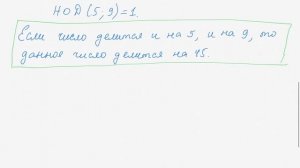 НОД (5, 9) = 1.
Если число делится и на 5, и на 9, то
данное число делится на 45.